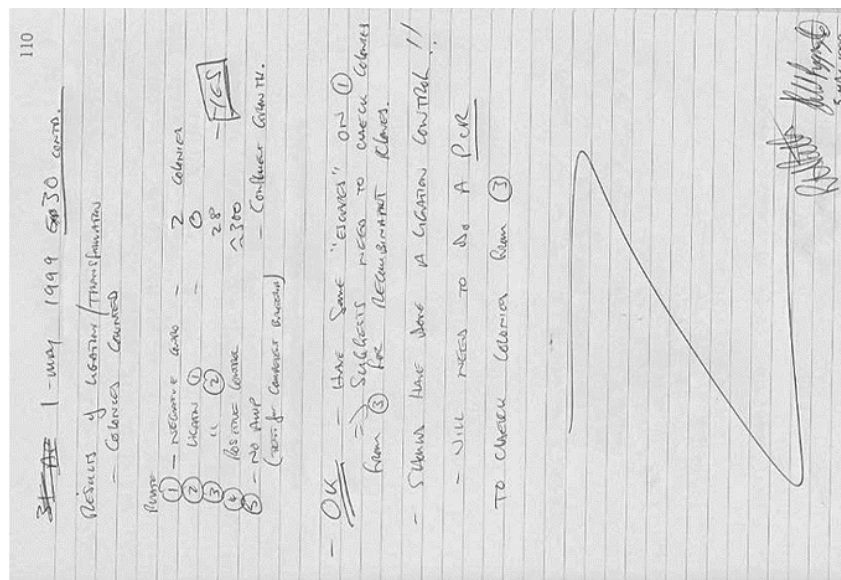 110
1-May 1999 Exp 30 contd.
Results of Ligation/Transformation
- Colonies Counted
Plate
① - Negative Control - 2 colonies
② Ligation ① - 0
③ " ② 28 - YES
④ Positive Control ~300
⑤ - No Amp - Confluent Growth.
(Test for Competent Bacteria)
- OK - Have some "escapees" on ①
⇒ Suggests need to check colonies
from ③ for recombinant clones.
- Should have done a ligation control!!
- Will need to do a PCR
to check colonies from ③